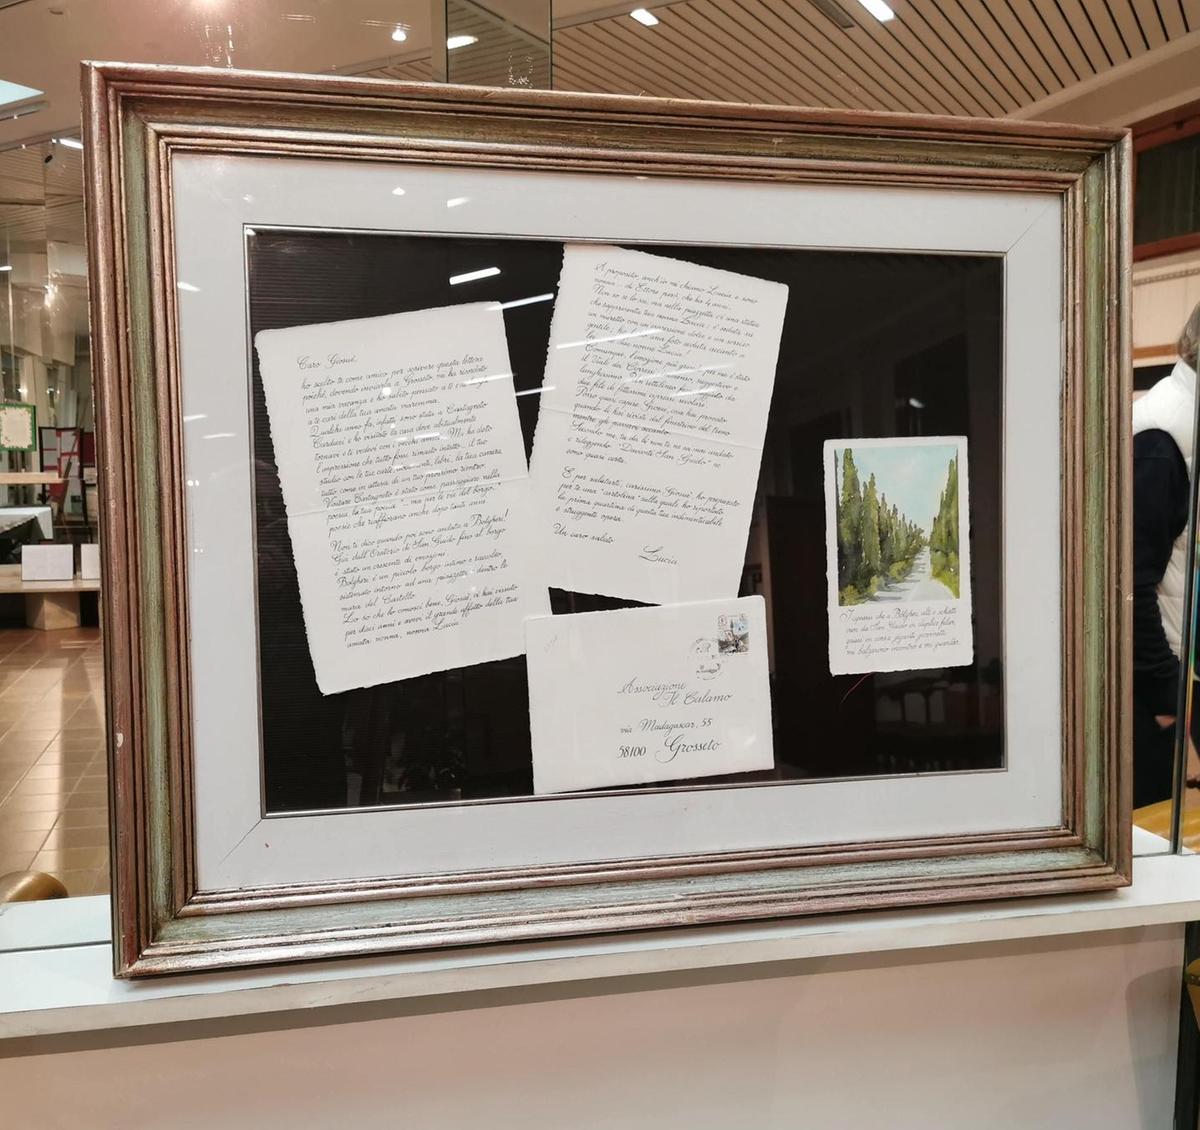 Caro Giosuè,
ho scelto te come amico per scrivere questa lettera
poiché, dovendo inviarla a Grosseto, mi ha ricordato
una mia vacanza e ho subito pensato a te e ai luoghi
a te cari della tua amata maremma.
Qualche anno fa, infatti sono stata a Castagneto
Carducci e ho visitato la casa dove abitualmente
tornavi e ti vedevi con i vecchi amici. Mi ha dato
l'impressione che tutto fosse rimasto intatto... il tuo
studio con le tue carte, documenti, libri, la tua camera,
tutto come in attesa di un tuo prossimo rientro.
Visitare Castagneto è stato come passeggiare nella
poesia, la tua poesia - ma per le vie del borgo -
poesie che riaffiorano anche dopo tanti anni.
Non ti dico quando poi sono andata a Bolgheri!
Già dall'Oratorio di San Guido fino al borgo
è stato un crescente di emozioni.
Bolgheri è un piccolo borgo intimo e raccolto,
sistemato intorno ad una piazzetta dentro le
mura del Castello.
Lo so che lo conosci bene, Giosuè, vi hai vissuto
per dieci anni e avevi il grande affetto della tua
amata nonna, nonna Lucia.
A proposito, anch'io mi chiamo Lucia e sono
nonna - di Ettore però, che ha 4 anni.
Non so se lo sai, ma nella piazzetta c'è una statua
che rappresenta tua nonna Lucia: è seduta su
un muretto con un'espressione dolce e un sorriso
gentile; ho fatto una foto seduta accanto a
lei - due nonne Lucia!
Comunque, l'emozione più grande per me è stato
il Viale dei Cipressi: immenso, suggestivo e
lunghissimo. Un rettilineo fiancheggiato da
due file di fittissimi cipressi secolari.
Posso quasi capire, Giosuè, cosa hai provato
quando li hai rivisti dal finestrino del treno
mentre gli passavi accanto.
Secondo me, tu da lì non te ne sei mai andato
e rileggendo "Davanti San Guido" ne
sono quasi certa.
E per salutarti, carissimo Giosuè, ho preparato
per te una "cartolina" sulla quale ho riportato
la prima quartina di questa tua indimenticabile
e struggente opera.
Un caro saluto
Lucia
Associazione
Il Calamo
via Madagascar, 55
58100 Grosseto
I cipressi che a Bólgheri alti e schietti
van da San Guido in duplice filar,
quasi in corsa giganti giovinetti
mi balzarono incontro e mi guardar.